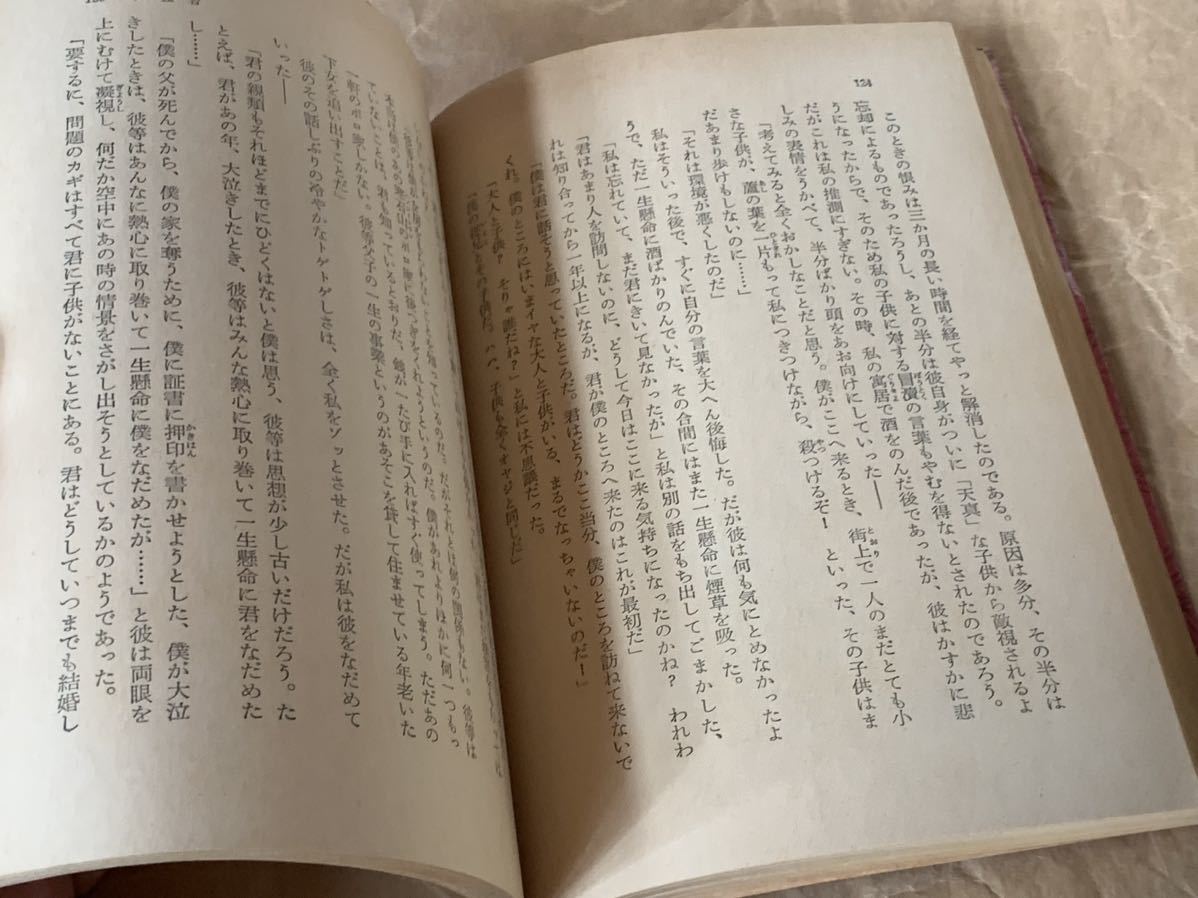 124
このときの恨みは三か月の長い時間を経てやっと解消したのである。原因は多分、その半分は
忘却によるものであったろうし、あとの半分は彼自身がついに「天真」な子供から敵視されるよ
うになったからで、そのため私の子供に対する冒瀆の言葉もやむを得ないとされたのであろう。
だがこれは私の推測にすぎない。その時、私の寓居で酒をのんだ後であったが、彼はかすかに悲
しみの表情をうかべて、半分ばかり頭をあお向けにしていった――
「考えてみると全くおかしなことだと思う。僕がここへ来るとき、街上で一人のまだとても小
さな子供が、蘆の葉を一片もって私につきつけながら、殺つけるぞ！　といった、その子供はま
だあまり歩けもしないのに……」
「それは環境が悪くしたのだ」
私はそういった後で、すぐに自分の言葉を大へん後悔した。だが彼は何も気にとめなかったよ
うで、ただ一生懸命に酒ばかりのんでいた、その合間にはまた一生懸命に煙草を吸った。
「私は忘れていて、まだ君にきいて見なかったが」と私は別の話をもち出してごまかした、
「君はあまり人を訪問しないのに、どうして今日はここに来る気持ちになったのかね？　われわ
れは知り合ってから一年以上になるが、君が僕のところへ来たのはこれが最初だ」
「僕は君に話そうと思っていたところだ。君はどうかここ当分、僕のところを訪ねて来ないで
くれ。僕のところにはいまイヤな大人と子供がいる、まるでなっちゃいないのだ！」
「大人と子供？　そりゃ誰だね？」と私には不思議だった。
「僕の従兄とその子供だ。ハハ、子供も全くオヤジと同じだ」
ていないことは、君も知っているとおりだ、他が一たび手に入ればすぐ使ってしまう。ただあの
一軒のボロ家しかない。彼等父子の一生の事業というのがあそこを貸して住ませている年老いた
下女を追い出すことだ」
彼のその話しぶりの冷やかなトゲトゲしさは、全く私をゾッとさせた。だが私は彼をなだめて
いった――
「君の親類もそれほどまでにひどくはないと僕は思う、彼等は思想が少し古いだけだろう。た
とえば、君があの年、大泣きしたとき、彼等はみんな熱心に取り巻いて一生懸命に君をなだめた
し……」
「僕の父が死んでから、僕の家を奪うために、僕に証書に押印を書かせようとした、僕が大泣
きしたときは、彼等はあんなに熱心に取り巻いて一生懸命に僕をなだめたが……」と彼は両眼を
上にむけて凝視し、何だか空中にあの時の情景をさがし出そうとしているかのようであった。
「要するに、問題のカギはすべて君に子供がないことにある。君はどうしていつまでも結婚し